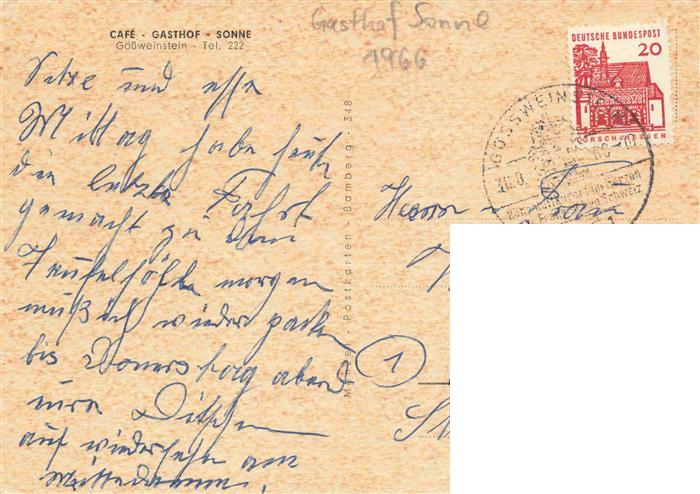 CAFÉ - GASTHOF - SONNE
Gößweinstein - Tel. 222
Gasthof Sonne
1966
DEUTSCHE BUNDESPOST
20
LORSCH/HESSEN
GÖSSWEINS
Sitze und esse
Mittag habe heute
die letzte Fahrt
gemacht zu den
Teufelshöhle morgen
muß ich wieder packen
bis Donnerstag abend
auf wiedersehn am
Postkarten · Bamberg · 348
Herrn u Frau
1